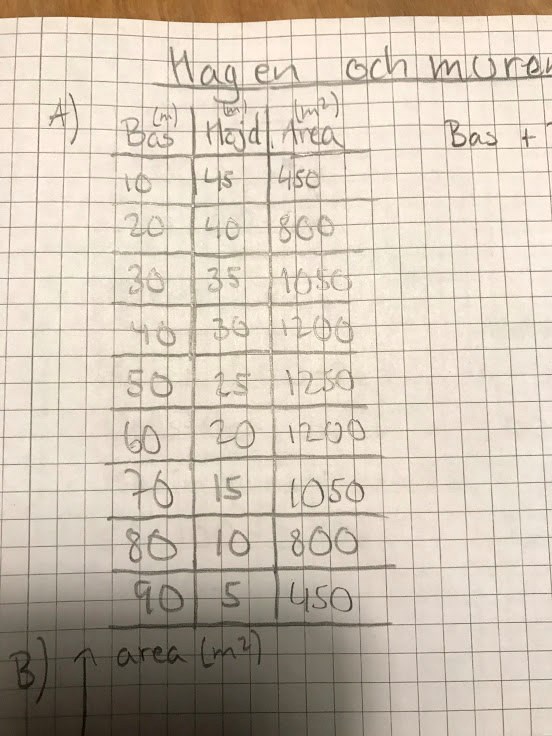 Hagen och muren
A)
Bas (m) Höjd (m) Area (m²)
Bas +
10 45 450
20 40 800
30 35 1050
40 30 1200
50 25 1250
60 20 1200
70 15 1050
80 10 800
90 5 450
B) ↑ area (m²)